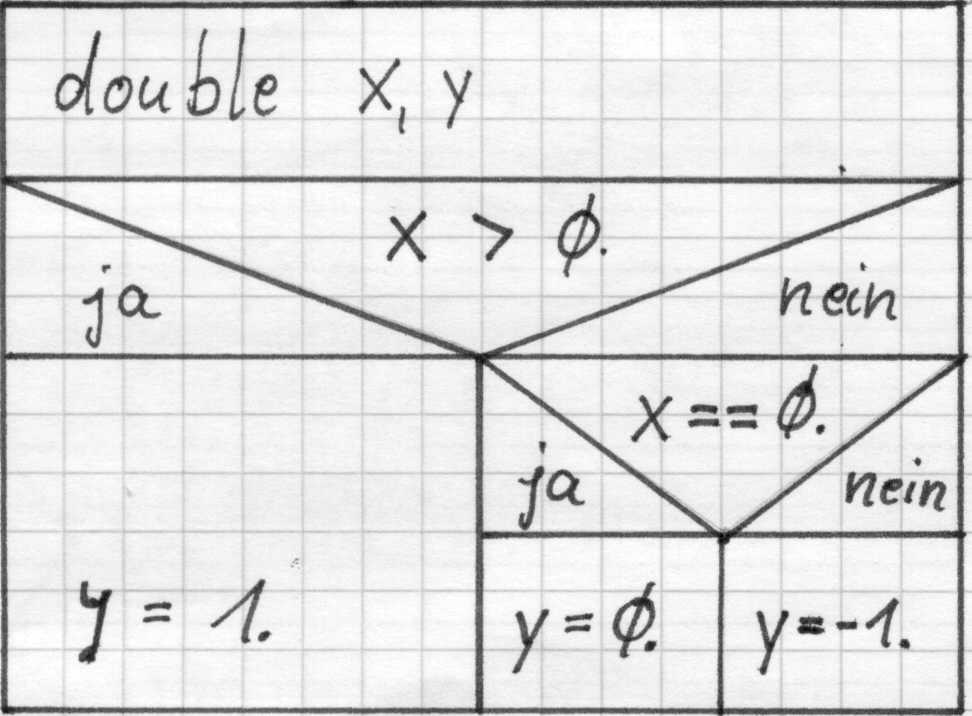 double x, y
x > 0.
ja nein
x == 0.
ja nein
y = 1. y = 0. y = -1.